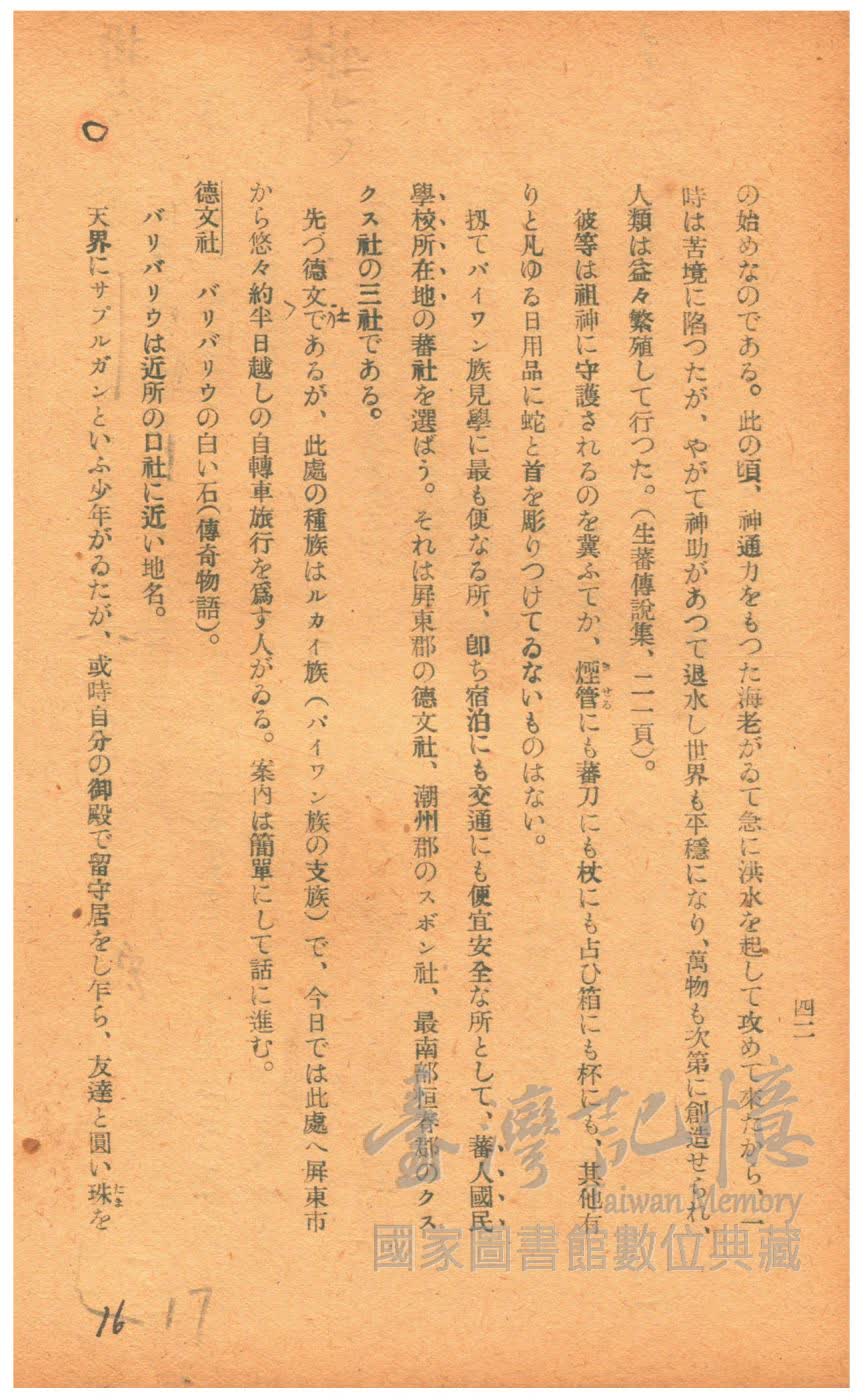 四二
の始めなのである。此の頃、神通力をもつた海老がゐて急に洪水を起して攻めて來たから、一
時は苦境に陷つたが、やがて神助があつて退水し世界も平穩になり、萬物も次第に創造せられ、
人類は益々繁殖して行つた。（生蕃傳說集、二一頁）。
彼等は祖神に守護されるのを冀ふてか、煙管にも蕃刀にも杖にも占ひ箱にも杯にも、其他有
りと凡ゆる日用品に蛇と首を彫りつけてゐないものはない。
扨てパイワン族見學に最も便なる所、卽ち宿泊にも交通にも便宜安全な所として、蕃人國民
學校所在地の蕃社を選ばう。それは屛東郡の德文社、潮州郡のスボン社、最南部恒春郡のクス
クス社の三社である。
先づ德文社であるが、此處の種族はルカイ族（パイワン族の支族）で、今日では此處へ屛東市
から悠々約半日越しの自轉車旅行を爲す人がゐる。案內は簡單にして話に進む。
德文社　バリバリウの白い石（傳奇物語）。
バリバリウは近所の口社に近い地名。
天界にサプルガンといふ少年がゐたが、或時自分の御殿で留守居をし乍ら、友達と圓い珠を
16
17
臺灣記憶
Taiwan Memory
國家圖書館數位典藏